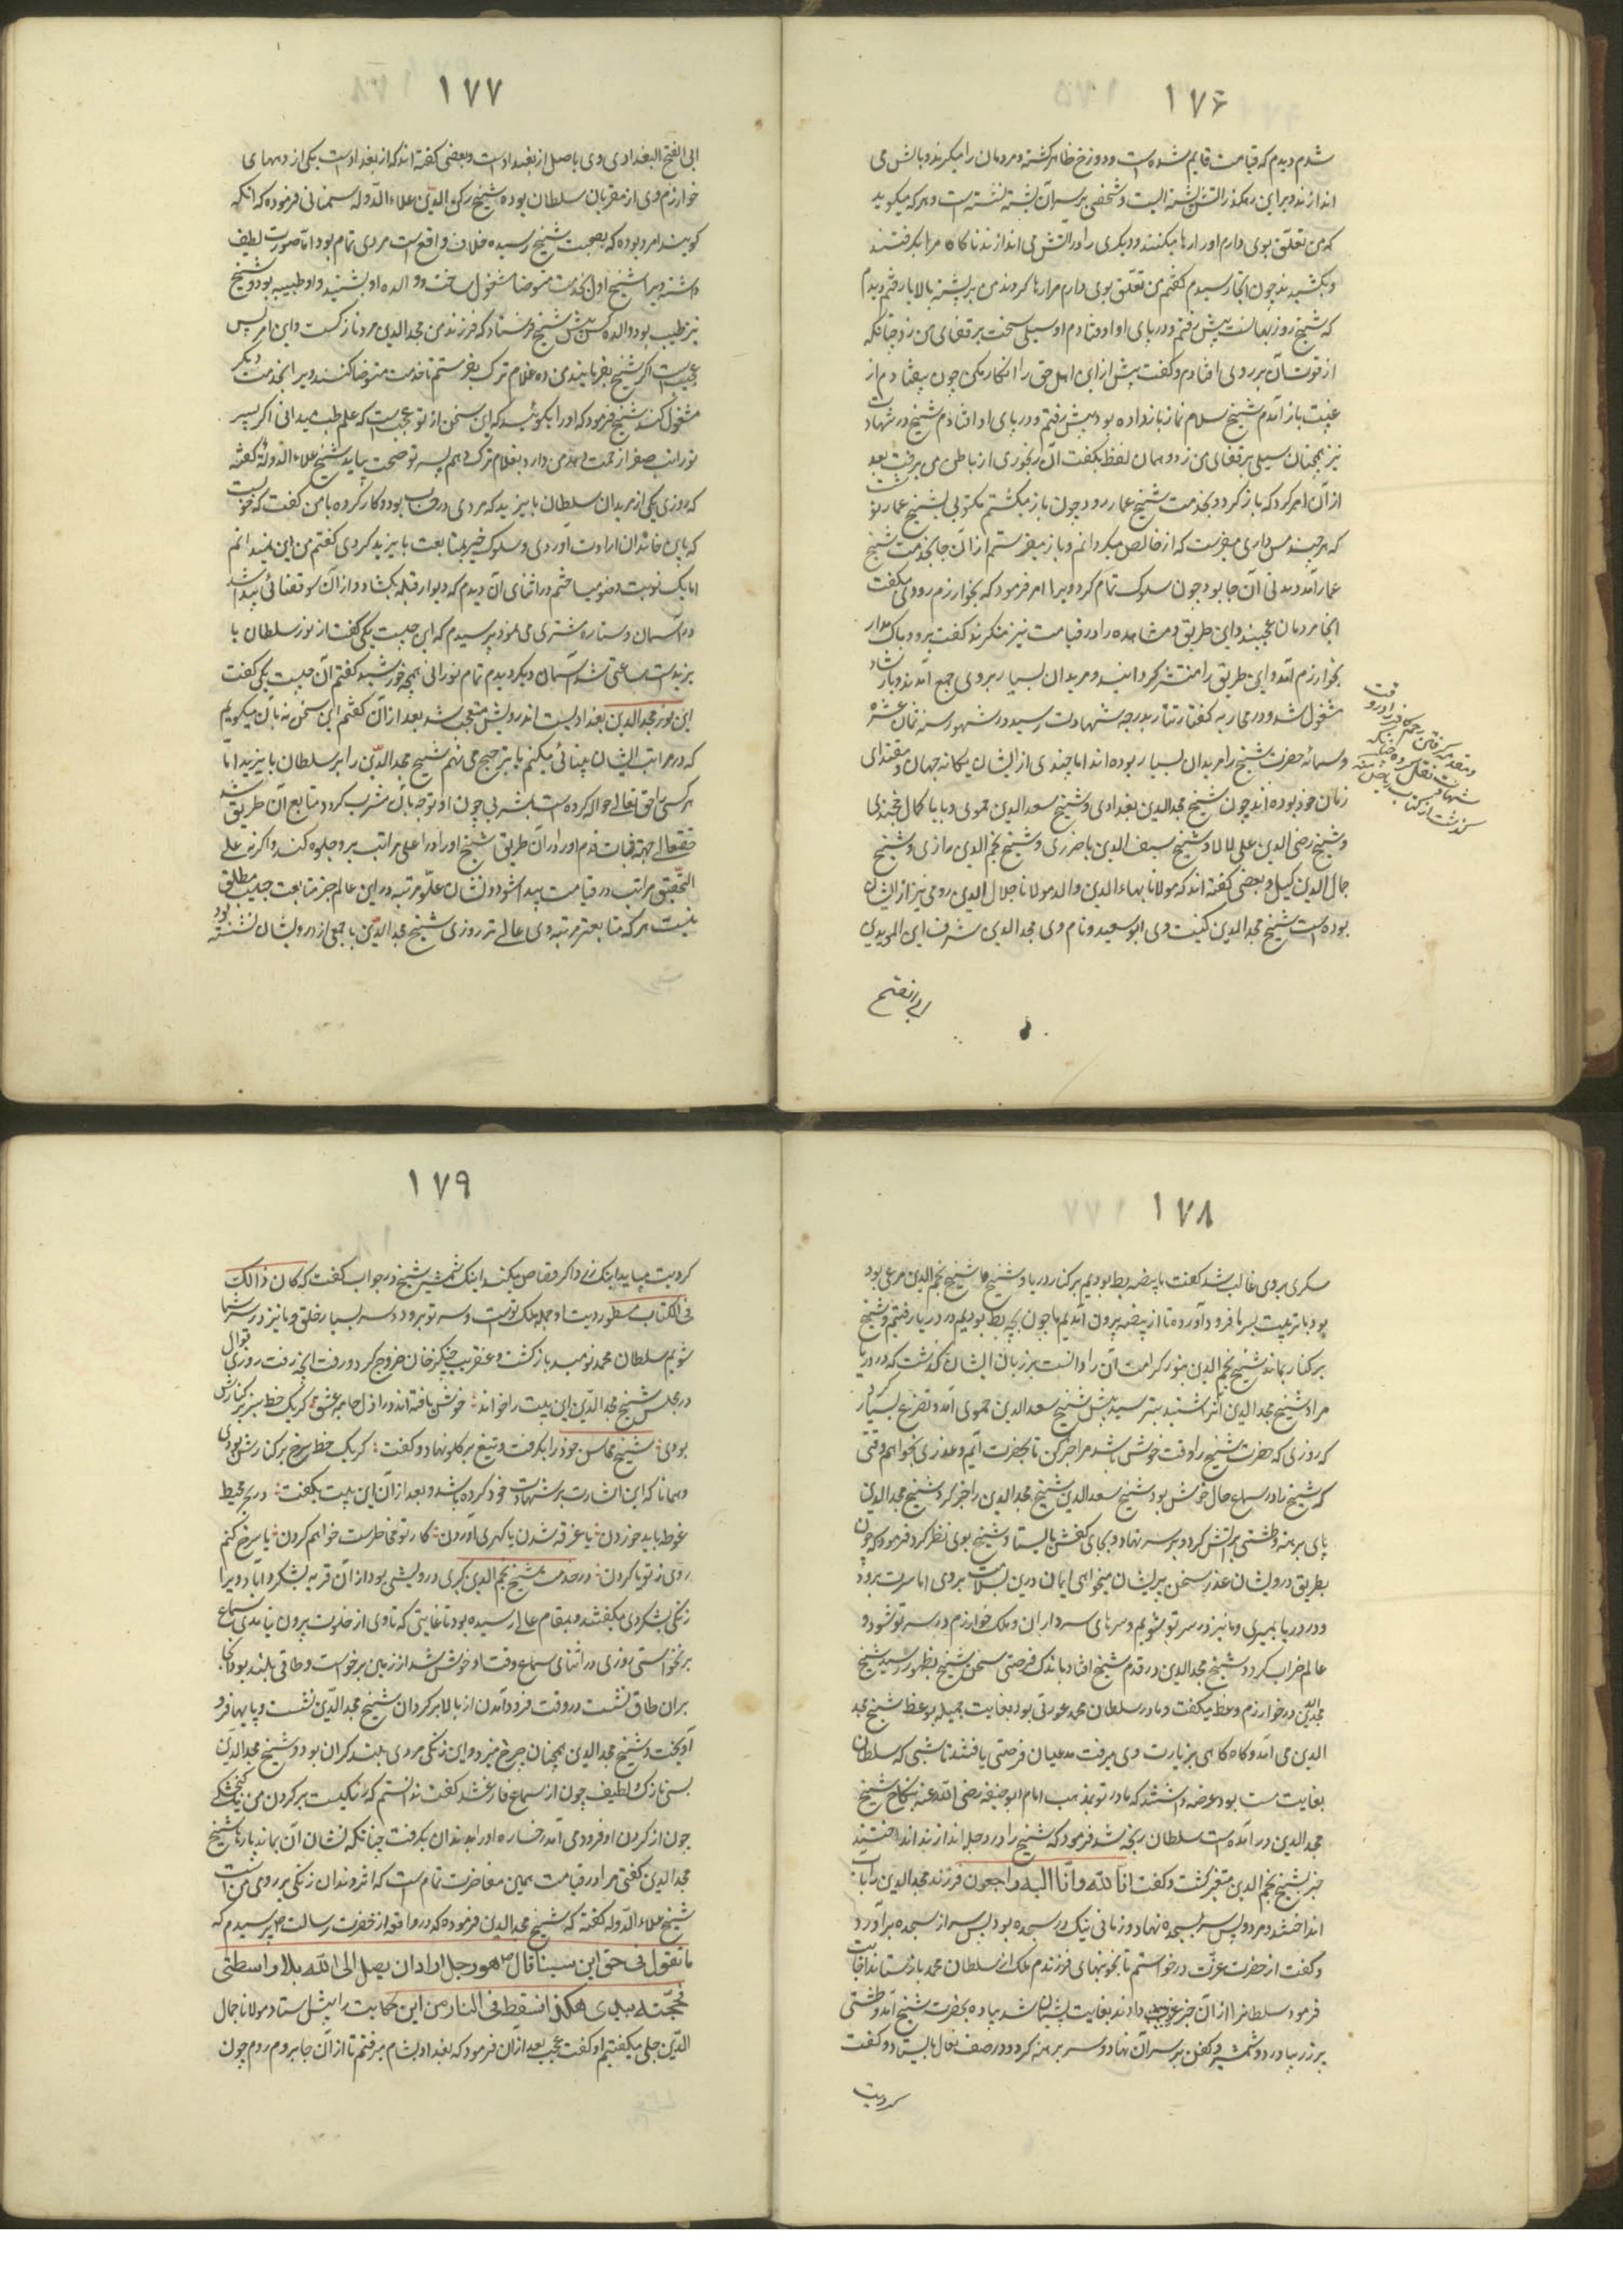 ۱۷۶
شدم دیدم که قیامت قایم شده است و دوزخ ظاهر کشته و مردمان را میکیرند و بالتش می
اندازند و برین رهکذر التش پشته ایست و شخصی بر سر آن پشته نشسته است و هر که میکوید
که من تعلق بوی دارم اورا رها میکنند و دیکری را در التش می اندازند ناکاه مرا بکرفتند
و بکشیدند چون آنجا رسیدم کفتم من تعلق بوی دارم مرا رها کردند من بر پشته بالا رفتم دیدم
که شیخ روزبهانست پیش رفتم و در پای او افتادم او سیلی سخت بر قفای من زد چنانکه
از قوت آن بر روی افتادم و کفت پیش از این اهل حق را انکار مکن چون بیفتادم از
غیبت باز آمدم شیخ سلام نماز باز داده بود پیش رفتم و در پای او افتادم شیخ در شهادت
نیز همچنان سیلی بر قفای من زد و همان لفظ بکفت آن رنجوری از باطن من برفت بعد
از آن امر کرد که باز کرد و بخدمت شیخ عمار رو و چون باز میکشتم مکتوبی بشیخ عمار نوشت
که هر چند مس داری میفرست که زر خالص میکردانم و باز میفرستم از آن جا بخدمت شیخ
عمار آمد و مدتی آن جا بود چون سلوک تمام کرد ویرا امر فرمود که بخوارزم رو وی کفت
آنجا مردمان عجبند و این طریق و مشاهده را در قیامت نیز منکرند کفت برو و باک مدار
بخوارزم آمد و این طریق را منتشر کردانید و مریدان بسیار بر وی جمع آمدند و بارشاد
مشغول شد و در محاربه کفار تتار بدرجه شهادت رسید در شهور سنه ثمان عشره
و ستمائه حضرت شیخ را مریدان بسیار بوده اند اما چندی از ایشان یکانه جهان و مقتدای
زمان خود بوده اند چون شیخ مجد الدین بغدادی و شیخ سعد الدین حموی و بابا کمال خجندی
و شیخ رضی الدین علی لالا و شیخ سیف الدین باخرزی و شیخ نجم الدین رازی و شیخ
جمال الدین کیل و بعضی کفته اند که مولانا بهاء الدین والد مولانا جلال الدین رومی نیز از ایشان
بوده است شیخ مجد الدین کنیت وی ابو سعید و نام وی مجد الدین شرف ابن المویدبن
ابی الفتح
۱۷۷
ابی الفتح البغدادی وی باصل از بغداد است و بعضی کفته اند که از بغدادست یکی از دیهای
خوارزم وی از مقربان سلطان بوده شیخ رکن الدین علاء الدوله سمنانی فرموده که آنکه
کویند امرد بوده که بصحبت شیخ رسیده خلاف واقع است مردی تمام بود اما صورت لطیف
داشته ویرا شیخ اول بخدمت متوضا مشغول ساخت و والده او بشنید و او طبیبه بود و شیخ
نیز طبیب بود والده کس پیش شیخ فرستاد که فرزند من مجد الدین مرد نازکست و این امر بس
عجبست اکر شیخ بفرمایند من ده غلام ترک بفرستم تا خدمت متوضا کنند ویرا بخدمت دیکر
مشغول کنند شیخ فرمود که او را بکوئید که این سخن از تو عجبست که علم طب میدانی اکر پسر
تورا تب صفرا زحمت دهد من دارو بغلام ترک دهم پسر تو صحت نیابد شیخ علاء الدوله کفته
که روزی یکی از مریدان سلطان بایزید که مردی در حسب بود و کار کرده با من کفت که خواست
که باین خاندان ارادت آوردی و سلوک خیر بمتابعت بایزید کردی کفتم من این نمیدانم
اما یک نوبت وضو میساختم در اثنای آن دیدم که دیوار قبله بکشاد و از آن سو فضائی پیدا شد
در آسمان و ستاره مشتری می نمود پرسیدم که این چیست یکی کفت از نور سلطان با
یزیدست ساعتی شد آسمان دیکر دیدم تمام نورانی همچه خورشید کفتم آن چیست یکی کفت
این نور مجد الدین بغدادیست اندرویش متعجب شد بعد از آن کفتم این سخن نه بآن میکویم
که در مراتب ایشان بینائی میکنم یا بترجیح می نهم شیخ مجد الدین را بر سلطان بایزید اما
هر کسی را حق تعالی حواله کرده است بمشربی چون او توجه بآن مشرب کرد و متابع آن طریق شد
حقتعالی جهة ثبات قدم او در آن طریق شیخ او را در اعلی مراتب برو جلوه کند و اکر نه علی
التحقیق مراتب در قیامت پیدا شود و نشان علو مرتبه در این عالم جز متابعت حبیب مطلق
نیست هر که متابعتر مرتبه وی عالی تر روزی شیخ مجد الدین با جمعی از درویشان نشسته بود
۱۷۸
سکری بر وی غالب شد کفت ما بیضه بط بودیم بر کنار دریا و شیخ ما شیخ نجم الدین مرغی بود
بود بال تربیت بسر ما فرود آورد تا از بیضه بیرون آمدیم ما چون بچه بط بودیم در دریا رفتیم و شیخ
بر کنار بماند شیخ نجم الدین بنور کرامت آن را دانست بر زبان ایشان کذشت که در دریا
میراد شیخ مجد الدین آنرا شنید بترسید پیش شیخ سعد الدین حموی آمد و تضرع بسیار کرد
که روزی که حضرت شیخ را وقت خوش باشد مرا خبر کن تا بحضرت آیم و عذری بخواهم وقتی
که شیخ را در سماع حال خوش بود شیخ سعد الدین شیخ مجد الدین را خبر کرد شیخ مجد الدین
پای برهنه و طشتی پر اتش کرد و بر سر نهاد و بجای کفش بایستاد شیخ بوی نظر کرد فرمود که چون
بطریق درویشان عذر سخن پریشان میخواهی ایمان و دین بسلامت بردی اما سرت برود
و در دریا بمیری و ما نیز در سر تو شویم و سرهای سرداران و ملک خوارزم در سر تو شود و
عالم خراب کردد شیخ مجد الدین در قدم شیخ افتاد باندک فرصتی سخن شیخ بظهور رسید شیخ
مجد الدین در خوارزم وعظ میکفت و مادر سلطان محمد عورتی بود بغایت جمیله بوعظ شیخ مجد
الدین می آمد و کاه کاهی بزیارت وی میرفت مدعیان فرصتی یافتند تا شبی که سلطان
بغایت مست بود عرضه داشتند که مادر تو بمذهب امام ابو حنیفه رضی الله عنه بنکاح شیخ
مجد الدین در آمده است سلطان رنجه شد فرمود که شیخ را در دجله اندازند انداختند
خبر بشیخ نجم الدین متغیر کشت و کفت انا لله وانا الیه راجعون فرزند مجد الدین را باب
انداختند و مرد پس سر بسجده نهاد و زمانی نیک در سجده بود پس سر از سجده بر آورد
و کفت از حضرت عزت درخواستم تا بخونبهای فرزندم ملک از سلطان محمد باز ستاند اجابت
فرمود سلطانرا از آن خبر دادند بغایت پشیمان شد پیاده بحضرت شیخ آمد و طشتی
پر زر بیاورد و شمشیر و کفن بر سر آن نهاد و سر برهنه کرد و در صف نعال بایستاد و کفت
کردیت
۱۷۹
کر دیت میباید اینک زر و اکر قصاص میکنید اینک شمشیر شیخ در جواب کفت که کان ذالک
فی الکتاب مسطورا دیت او جمله ملک توست و سر تو برود و سر بسیار خلق و ما نیز در سر شما
شویم سلطان محمد نومید باز کشت و عنقریب چنکیز خان خروج کرد و رفت آنچه رفت روزی قوال
در مجلس شیخ مجد الدین این بیت را خواند خوش بافته اند در ازل جامه عشق کر یک خط سبز بر کنارش
بودی شیخ محاسن خود را بکرفت و تیغ بر کلو نهاد و کفت کر یک خط سرخ بر کنارش بودی
و همانا که این اشارت بر شهادت خود کرده باشد و بعد از آن این بیت بکفت در بحر محیط
غوطه باید خوردن یا غرقه شدن یا کهری آوردن کار تو مخاطرست خواهم کردن یا سرخ کنم
روی ز تو یا کردن در خدمت شیخ نجم الدین کبری درویشی بود از آن قریه بشکرداباد ویرا
زنکی بشکردی میکفتند و بمقام عالی رسیده بود تا غایتی که تا وی از خلوت بیرون نیامدی سماع
بر نخواستی روزی در اثنای سماع وقت او خوش شد از زمین برخواست و طاقی بلند بود آنجا
بران طاق نشست در وقت فرود آمدن از بالا بر کردن شیخ مجد الدین نشست و پایها فرو
آویخت و شیخ مجد الدین همچنان چرخ میزد و این زنکی مردی بلند کران بود و شیخ مجد الدین
بس نازک لطیف چون از سماع فارغ شد کفت ندانستم که زنکیست بر کردن من یا کنجشکی
چون از کردن او فرود می آمد رخساره او را بدندان بکرفت چنانکه نشان آن بماند بارها شیخ
مجد الدین کفتی مرا در قیامت همین مفاخرت تمام است که اثر دندان زنکی بر روی من است
شیخ علاء الدوله کفته که شیخ مجد الدین فرموده که در واقعه از حضرت رسالت ص پرسیدم که
ما تقول فی حق ابن سینا قال ص هو رجل اراد ان یصل الی الله بلا واسطتی
فحجبته بیدی هکذا فسقط فی النار من این حکایت را پیش استاد مولانا جمال
الدین جلی میکفتم او کفت عجب بعد از آن فرمود که از بغداد بشام میرفتم تا از آن جا بروم روم چون